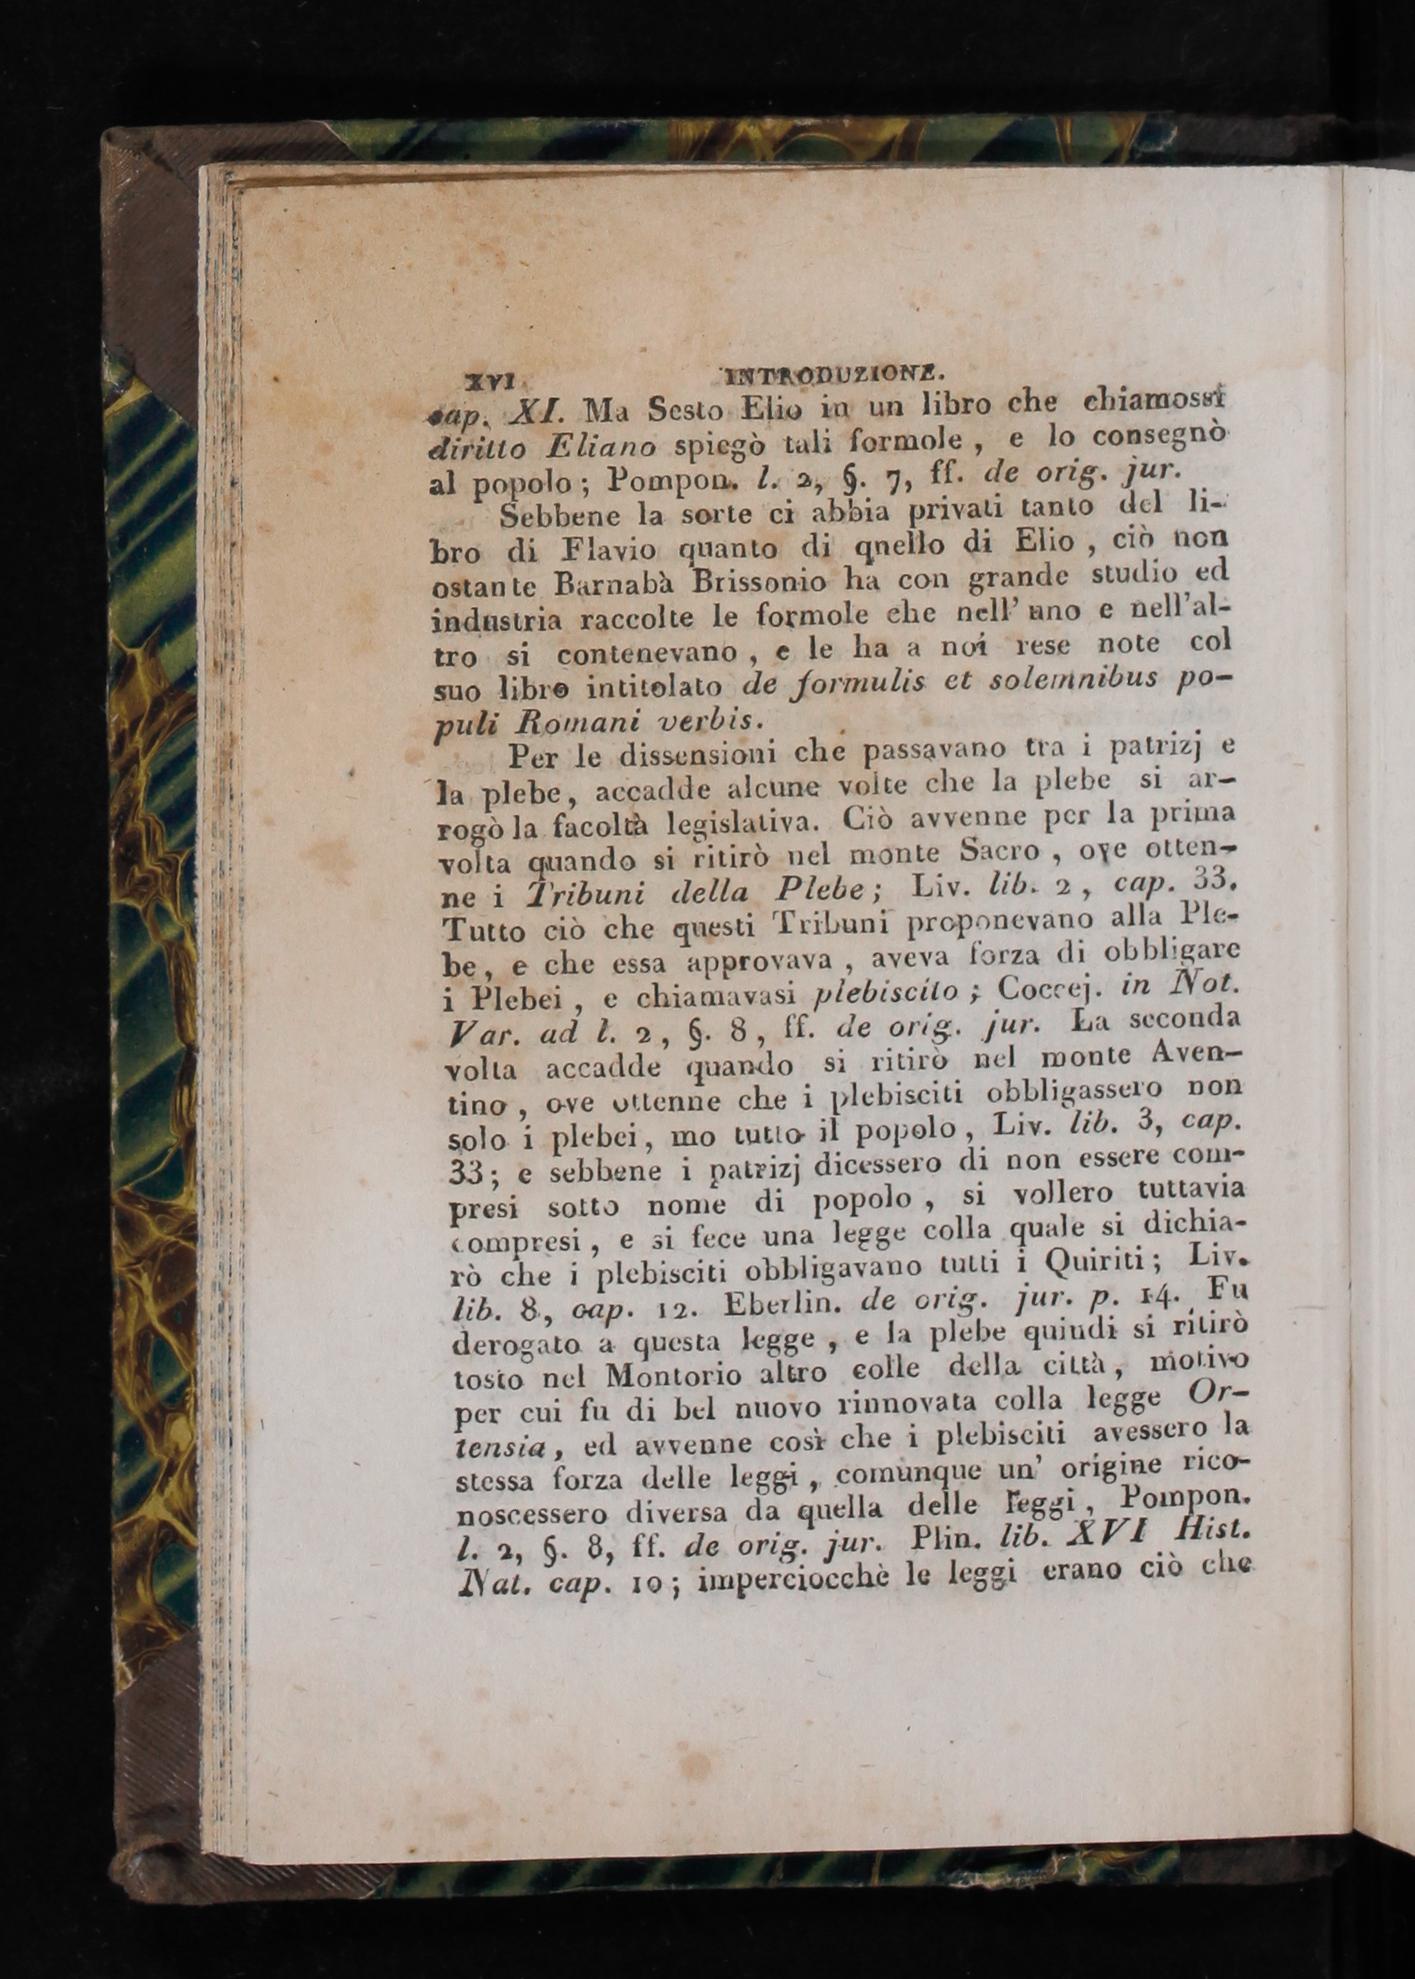 XVI INTRODUZIONE.
cap. XI. Ma Sesto Elio in un libro che chiamossi
diritto Eliano spiegò tali formole , e lo consegnò
al popolo ; Pompon. l. 2, §. 7, ff. de orig. jur.
Sebbene la sorte ci abbia privati tanto del li-
bro di Flavio quanto di qnello di Elio , ciò non
ostante Barnabà Brissonio ha con grande studio ed
industria raccolte le formole che nell' uno e nell'al-
tro si contenevano , e le ha a noi rese note col
suo libro intitolato de formulis et solemnibus po-
puli Romani verbis.
Per le dissensioni che passavano tra i patrizj e
la plebe, accadde alcune volte che la plebe si ar-
rogò la facoltà legislativa. Ciò avvenne per la prima
volta quando si ritirò nel monte Sacro , ove otten-
ne i Tribuni della Plebe ; Liv. lib. 2 , cap. 33.
Tutto ciò che questi Tribuni proponevano alla Ple-
be, e che essa approvava , aveva forza di obbligare
i Plebei , e chiamavasi plebiscito ; Coccej. in Not.
Var. ad l. 2 , §. 8 , ff. de orig. jur. La seconda
volta accadde quando si ritirò nel monte Aven-
tino , ove ottenne che i plebisciti obbligassero non
solo i plebei, mo tutto il popolo , Liv. lib. 3, cap.
33; e sebbene i patrizj dicessero di non essere com-
presi sotto nome di popolo , si vollero tuttavia
compresi , e si fece una legge colla quale si dichia-
rò che i plebisciti obbligavano tutti i Quiriti ; Liv.
lib. 8, cap. 12. Eberlin. de orig. jur. p. 14. Fu
derogato a questa legge , e la plebe quindi si ritirò
tosto nel Montorio altro colle della città, motivo
per cui fu di bel nuovo rinnovata colla legge Or-
tensia, ed avvenne così che i plebisciti avessero la
stessa forza delle leggi , comunque un' origine rico-
noscessero diversa da quella delle leggi , Pompon.
l. 2, §. 8, ff. de orig. jur. Plin. lib. XVI Hist.
Nat. cap. 10 ; imperciocchè le leggi erano ciò che